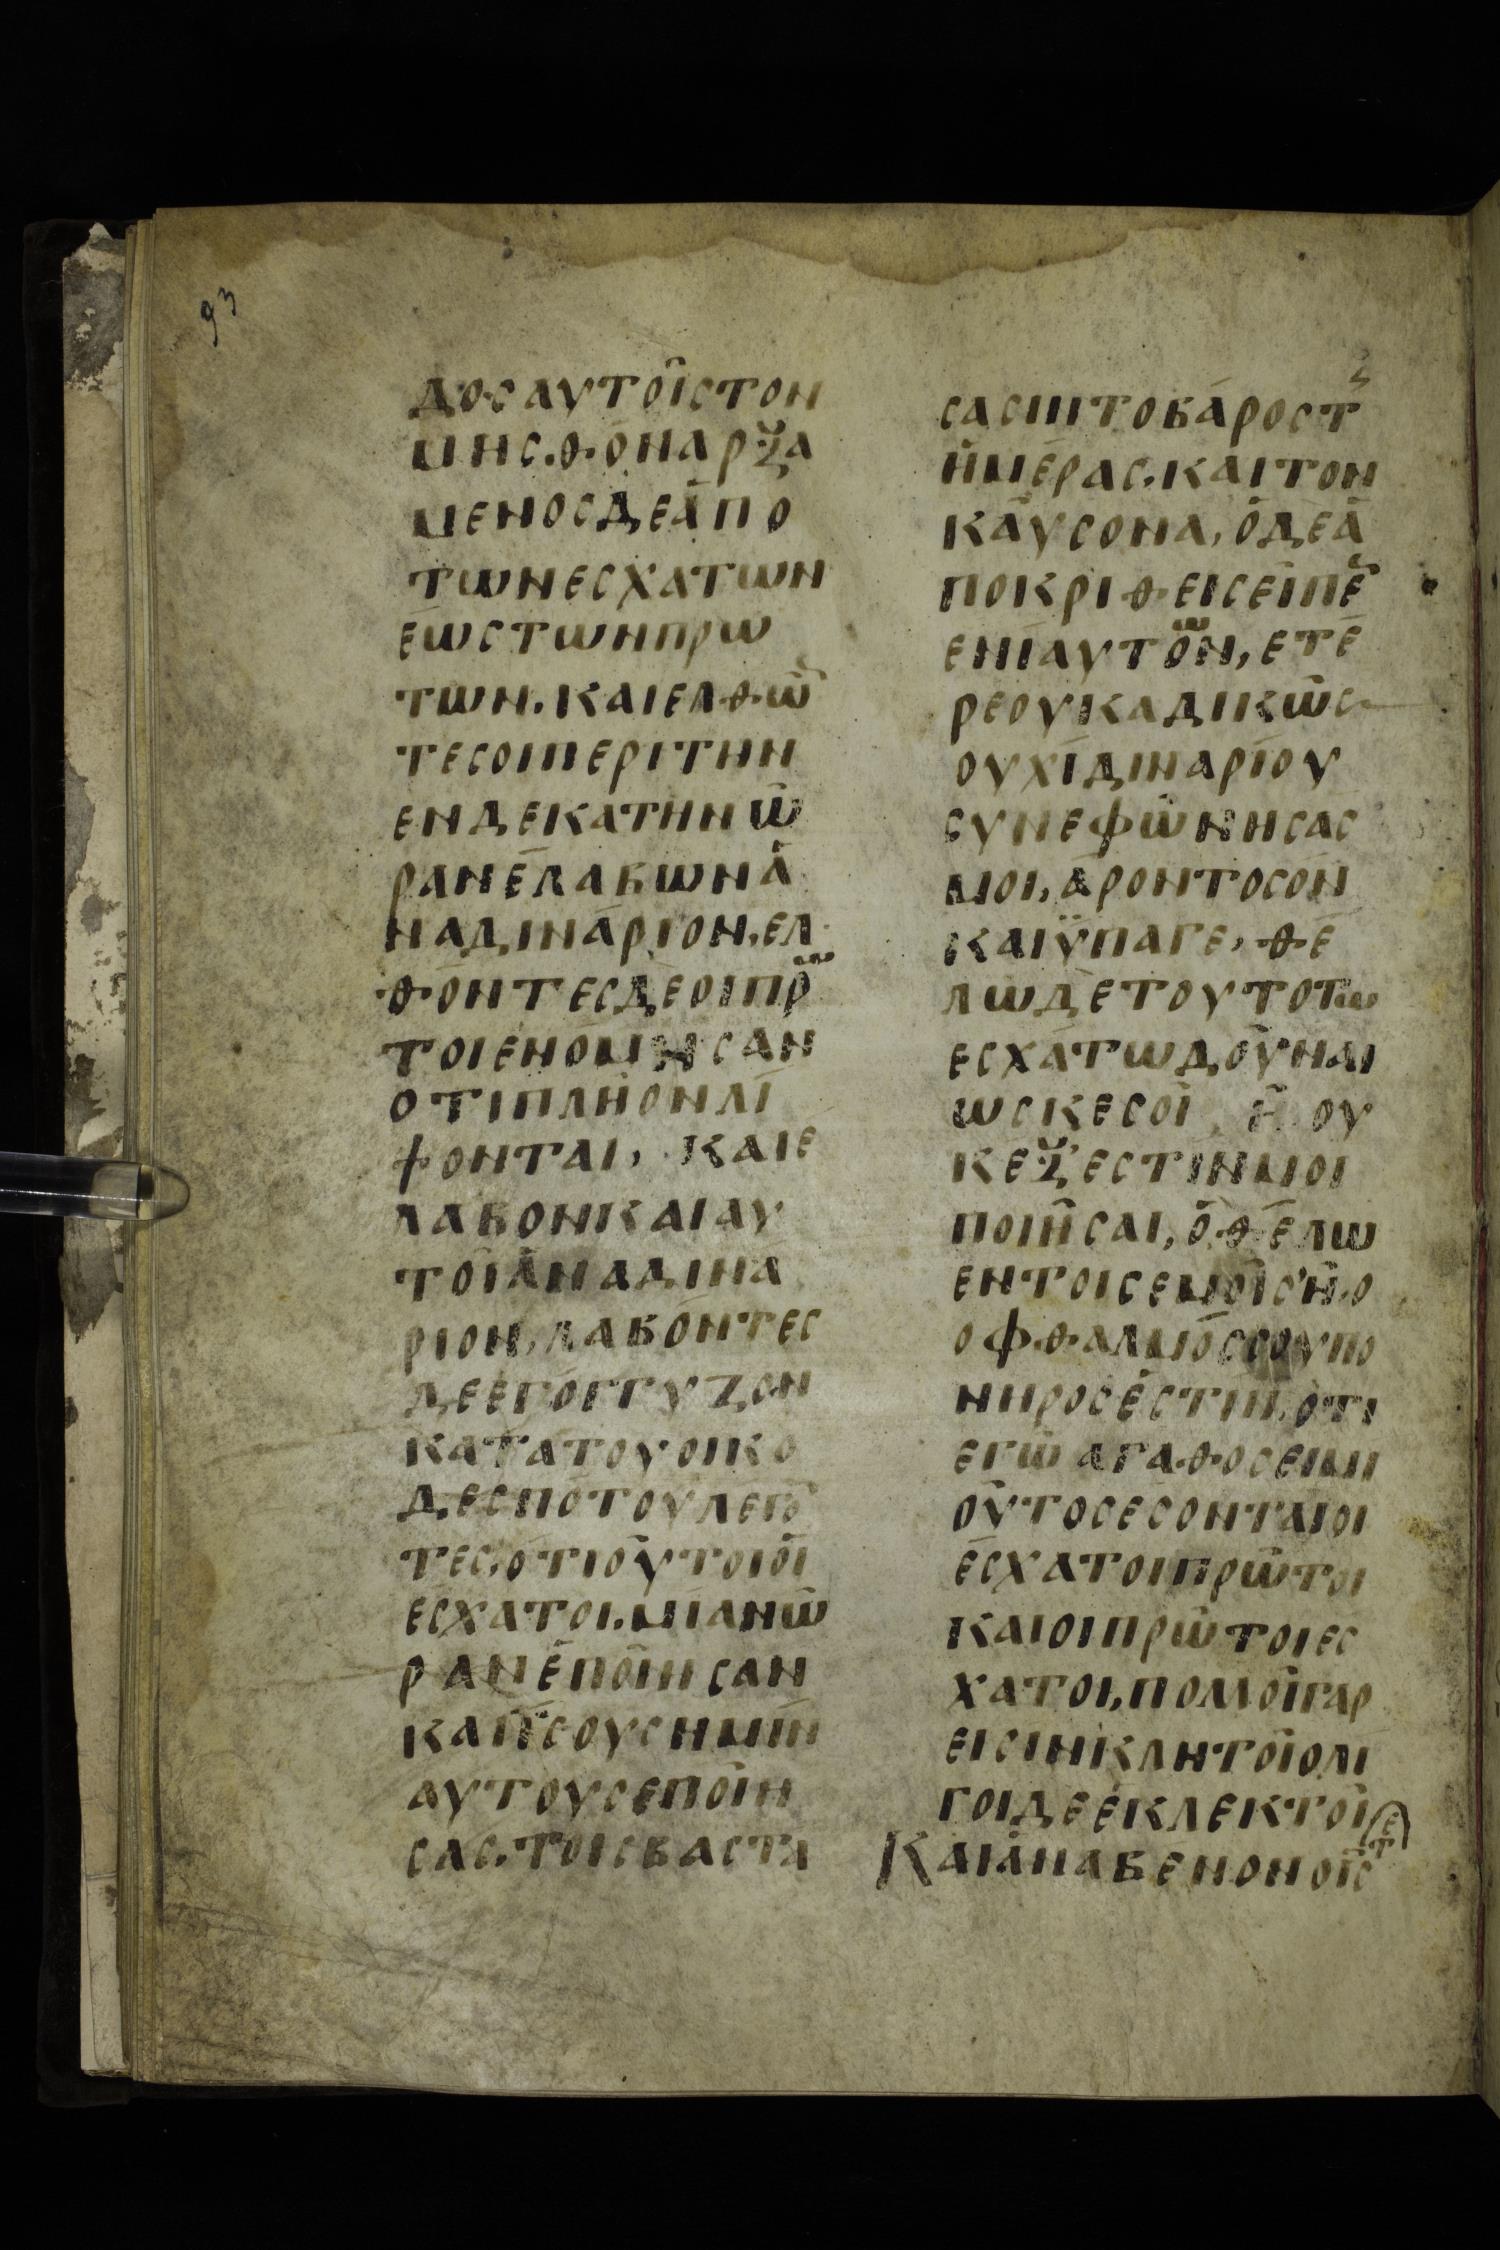 93
ΔΟΣΑΥΤΟΙΣΤΟΝ
ΜΗΣΘΟΝΑΡΞΑ
ΜΕΝΟΣΔΕΑΠΟ
ΤΩΝΕΣΧΑΤΩΝ
ΕΩΣΤΩΝΠΡΩ
ΤΩΝ.ΚΑΙΕΛΘΩ
ΤΕΣΟΙΠΕΡΙΤΗΝ
ΕΝΔΕΚΑΤΗΝΩ
ΡΑΝΕΛΑΒΩΝΑ
ΝΑΔΙΝΑΡΙΟΝ,ΕΛ
ΘΟΝΤΕΣΔΕΟΙΠΡΟ
ΤΟΙΕΝΟΜΗΣΑΝ
ΟΤΙΠΛΗΟΝΛΙ
ΨΟΝΤΑΙ, ΚΑΙΕ
ΛΑΒΟΝΚΑΙΑΥ
ΤΟΙΑΝΑΔΙΝΑ
ΡΙΟΝ,ΛΑΒΟΝΤΕΣ
ΔΕΕΓΟΓΓΥΖΟΝ
ΚΑΤΑΤΟΥΟΙΚΟ
ΔΕΣΠΟΤΟΥΛΕΓΟ
ΤΕΣ,ΟΤΙΟΥΤΟΙΟΙ
ΕΣΧΑΤΟΙ.ΜΙΑΝΩ
ΡΑΝΕΠΟΙΗΣΑΝ
ΚΑΙΣΟΥΣΗΜΙΝ
ΑΥΤΟΥΣΕΠΟΙΗ
ΣΑΣ.ΤΟΙΣΒΑΣΤΑ
ΣΑΣΙΝΤΟΒΑΡΟΣΤ
ΗΜΕΡΑΣ.ΚΑΙΤΟΝ
ΚΑΥΣΟΝΑ,ΟΔΕΑ
ΠΟΚΡΙΘΕΙΣΕΙΠΕ
ΕΝΙΑΥΤΟΝ,ΕΤΕ
ΡΕΟΥΚΑΔΙΚΩΣ
ΟΥΧΙΔΙΝΑΡΙΟΥ
ΣΥΝΕΦΩΝΗΣΑΣ
ΜΟΙ,ΑΡΟΝΤΟΣΟΝ
ΚΑΙΫΠΑΓΕ,ΘΕ
ΛΩΔΕΤΟΥΤΟΤΩ
ΕΣΧΑΤΩΔΟΥΝΑΙ
ΩΣΚΕΣΟΙ, Η ΟΥ
ΚΕΞΕΣΤΙΝΜΟΙ
ΠΟΙΗΣΑΙ,ΟΘΕΛΩ
ΕΝΤΟΙΣΕΜΟΙΣ'Η.Ο
ΟΦΘΑΛΜΟΣΣΟΥΠΟ
ΝΗΡΟΣΕΣΤΙΝ,ΟΤΙ
ΕΓΩ ΑΓΑΘΟΣΕΙΜΙ
ΟΥΤΟΣΕΣΟΝΤΑΙΟΙ
ΕΣΧΑΤΟΙΠΡΩΤΟΙ
ΚΑΙΟΙΠΡΩΤΟΙΕΣ
ΧΑΤΟΙ,ΠΟΛΛΟΙΓΑΡ
ΕΙΣΙΝΚΛΗΤΟΙΟΛΙ
ΓΟΙΔΕΕΚΛΕΚΤΟΙ
ΚΑΙΑΝΑΒΕΝΟΝΟΙΣ